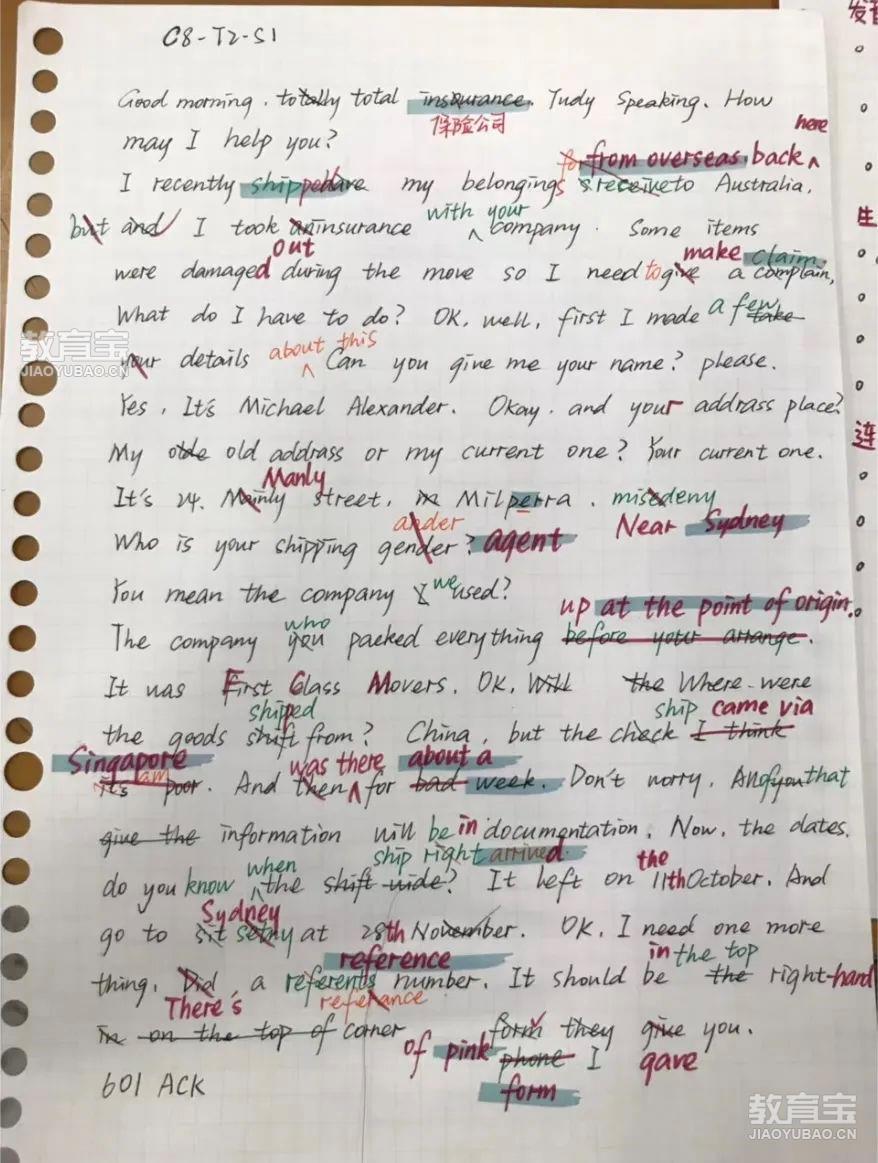 C8-T2-S1
Good morning. totally total insurance. Judy Speaking. How
保险公司
here
may I help you?
for from overseas back
I recently shipped have my belongings receive to Australia,
but and I took an insurance with your company. Some items
out make claim.
were damaged during the move so I need to give a complain,
What do I have to do? OK, well, first I made a few take
your details about this Can you give me your name? please.
Yes, It's Michael Alexander. Okay. and your addrass place?
My olde old addrass or my current one? Your current one.
Manly
It's 24. Mainly street, in Milperra. misedeny
ander Near Sydney
Who is your shipping gender? agent
You mean the company I we used?
up at the point of origin.
The company you who packed everything before your arrange.
It was First Class Movers. OK, Will the Where were
shiped ship came via
the goods shift from? China, but the check I think
Singapore was there about a
it's am poor. And then for bad week. Don't worry. And of you that
give the information will be in documentation. Now, the dates.
ship right arrived.
do you know when the shift wide? It left on the 11th October. And
Sydney
go to sit setny at 28th November. OK, I need one more
reference in the top
thing. Did a referents number. It should be the right-hand
There's referance
in on the top of corner form they give you.
of pink phone I gave
601 ACK form
发音
生
连
教育宝
JIAOYUBAO.CN
教育宝
JIAOYUBAO.CN